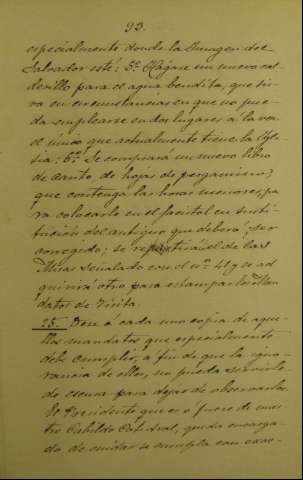 93.
especialmente donde la Imagen del
Salvador esté; 5º Hágase un nuevo cal-
derillo para el agua bendita, que sir-
va en circunstancias en que no pue-
da emplearse en dos lugares á la vez
el único que actualmente tiene la Igle-
sia; 6º Se comprará un nuevo libro
de Canto de hojas de pergamino,
que contenga las horas menores, pa-
ra colocarlo en el facistol en susti-
tución del antiguo que deberá ser
corregido; se el de las
Misas señalado con el nº 4 y se ad
quirirá otro para estampar los Man
datos de Visita.
25. Dese á cada uno copia de aque-
llos mandatos que especialmente
debe cumplir, á fin de que la igno-
rancia de ellos, no pueda servirle
de escusa para dejar de observarlos.
El Presidente que es ó fuere de nues-
tro Cabildo Catedral, queda encarga-
do de cuidar se cumpla con exac-